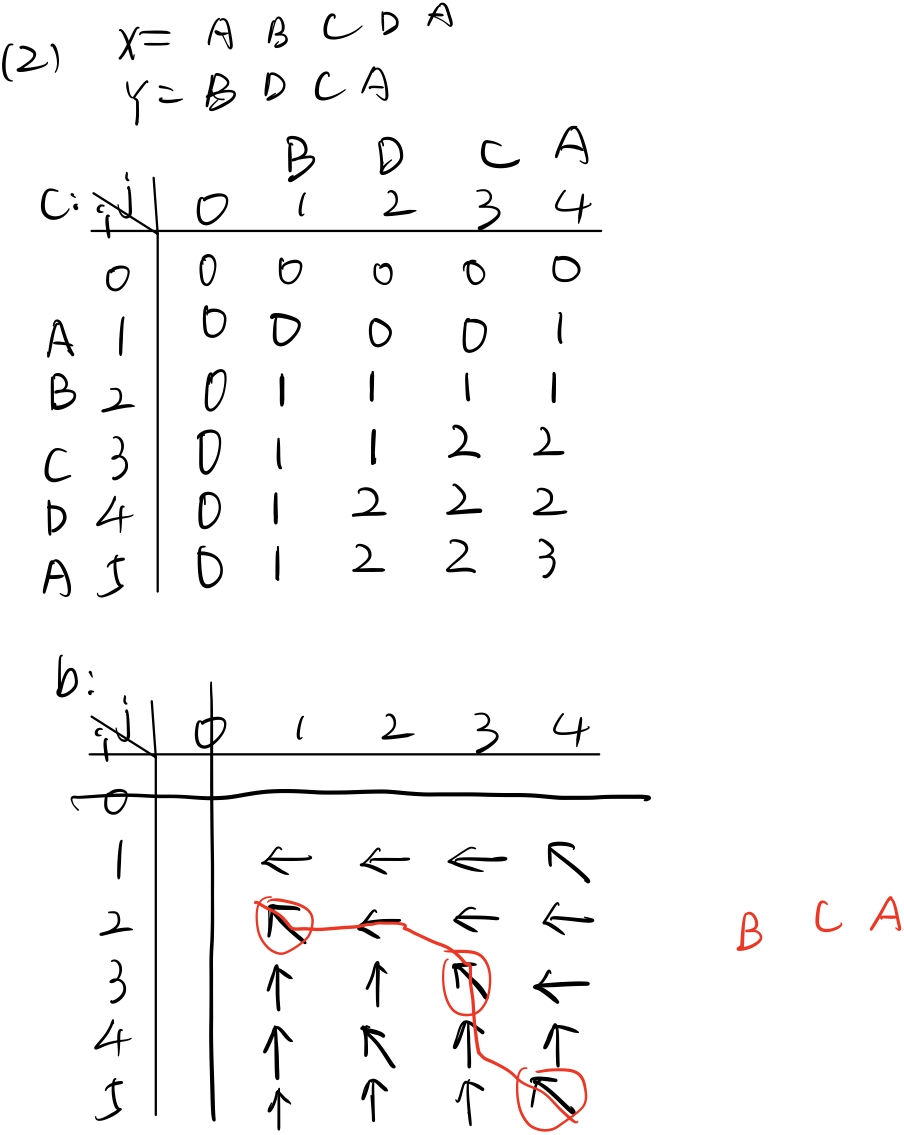 (2) X= A B C D A
Y= B D C A
B D C A
C: i j 0 1 2 3 4
0 0 0 0 0 0
A 1 0 0 0 0 1
B 2 0 1 1 1 1
C 3 0 1 1 2 2
D 4 0 1 2 2 2
A 5 0 1 2 2 3
b:
i j 0 1 2 3 4
0
1 ← ← ← ↖
2 ↖ ← ← ← B C A
3 ↑ ↑ ↖ ←
4 ↑ ↖ ↑ ↑
5 ↑ ↑ ↑ ↖